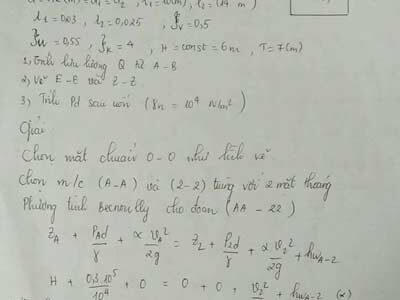 λ₁ = 0,03 , λ₂ = 0,025 , ξv = 0,5
ξu = 0,55 , ξk = 4 , H = const = 6m , T = 7(m)
1, Tính lưu lượng Q từ A - B
2, Vẽ E - E và Z - Z.
3) Tính Pd sau uốn (γn = 10⁴ N/m³)
Giải
Chọn mặt chuẩn 0-0 như hình vẽ
Chọn m/c (A-A) và (2-2) trùng với 2 mặt thoáng
Phương trình Becnoully cho đoạn (AA - 22)
Z_A + P_Ad/γ + αv_A²/2g = Z₂ + P₂d/γ + αv₂²/2g + hw_A-2
H + 0,3.10⁵/10⁴ + 0 = 0 + 0 + v₂²/2g + hw_A-2 (*)